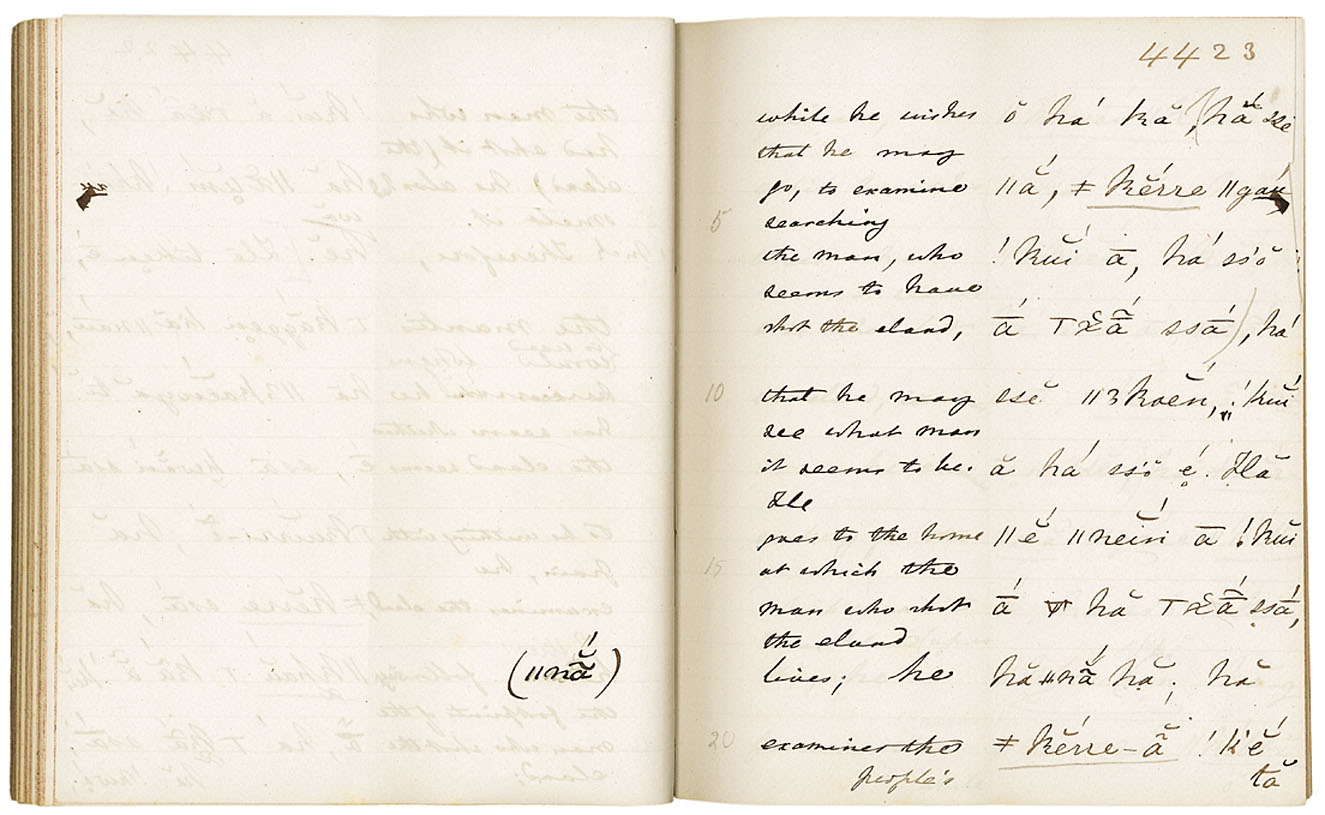 4423
while he wishes ŏ há kă, (hā́̆ sse
that he may
go, to examine ǁā́̆, ǂkĕ́rre ǁgau
5 searching
the man, who !kŭí ā, há ss'ŏ
seems to have
shot the eland, ā́ ssā́), há
10 that he may ssĕ ǁ3koĕ́n, !kŭí
see what man
it seems to be. ă há ss'ŏ é̥. Hă
He
goes to the home ǁĕ́ ǁneiń̆ ā !kŭi
15 at which the
man who shot ā́ hă ssā́,
the eland
lives; he hă ǁnā̆́ hă; hă
(ǁnā̃́̆)
20 examines the ǂkĕ́rre-ā̆ !k'ĕ́
people's tă